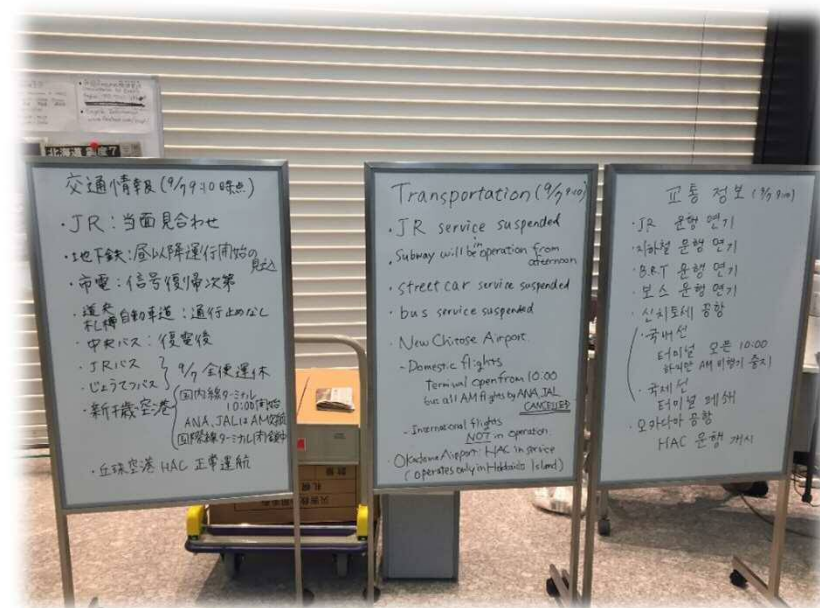 北海道 震度7
交通情報(9/7 9:10時点)
・JR:当面見合わせ
・地下鉄:昼以降運行開始の
見込
・市電:信号復帰次第
・道央
札樽自動車道:通行止めなし
・中央バス:復電後
・JRバス
・じょうてつバス
9/7 全便運休
・新千歳空港
国内線ターミナル
10:00開始
ANA、JALはAM欠航
国際線ターミナル閉鎖中
・丘珠空港 HAC 正常運航
Transportation (9/7 9:10)
・JR service suspended
・Subway will be in operation from
afternoon
・street car service suspended
・bus service suspended
・New Chitose Airport
- Domestic flights
Terminal open from 10:00
but all AM flights by ANA, JAL
CANCELLED
- International flights
NOT in operation
・Okadama Airport: HAC in service
(operates only in Hokkaido Island)
교통 정보 (9/7 9:10)
・JR 운행 연기
・지하철 운행 연기
・B.R.T 운행 연기
・보스 운행 연기
・신치토세 공항
・국내선
터미널 오픈 10:00
하지만 AM 비행기 중지
・국제선
터미널 폐쇄
・오카다마 공항
HAC 운행 개시